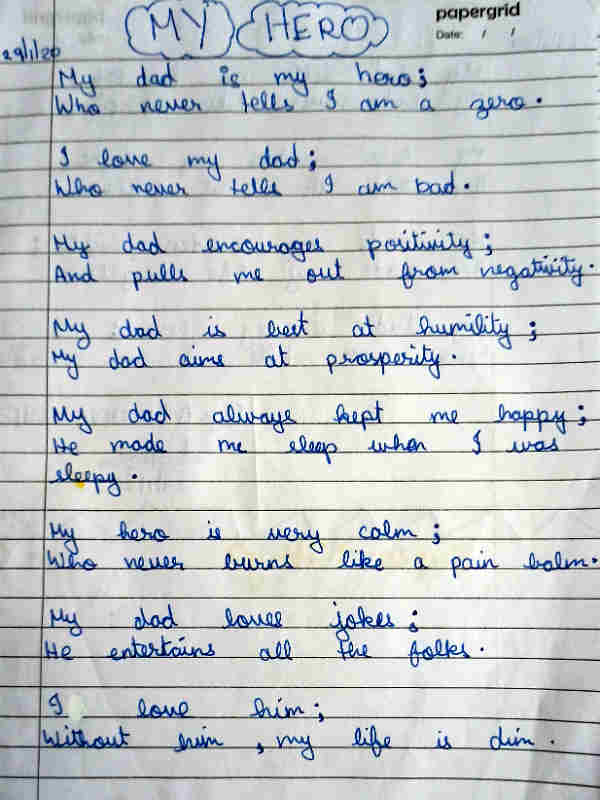 MY HERO
papergrid
Date: / /
29/1/20
My dad is my hero;
Who never tells I am a zero.
I love my dad;
Who never tells I am bad.
My dad encourages positivity;
And pulls me out from negativity.
My dad is best at humility;
My dad aims at prosperity.
My dad always kept me happy;
He made me sleep when I was
sleepy.
My hero is very calm;
Who never burns like a pain balm.
My dad loves jokes;
He entertains all the folks.
I love him;
Without him, my life is dim.